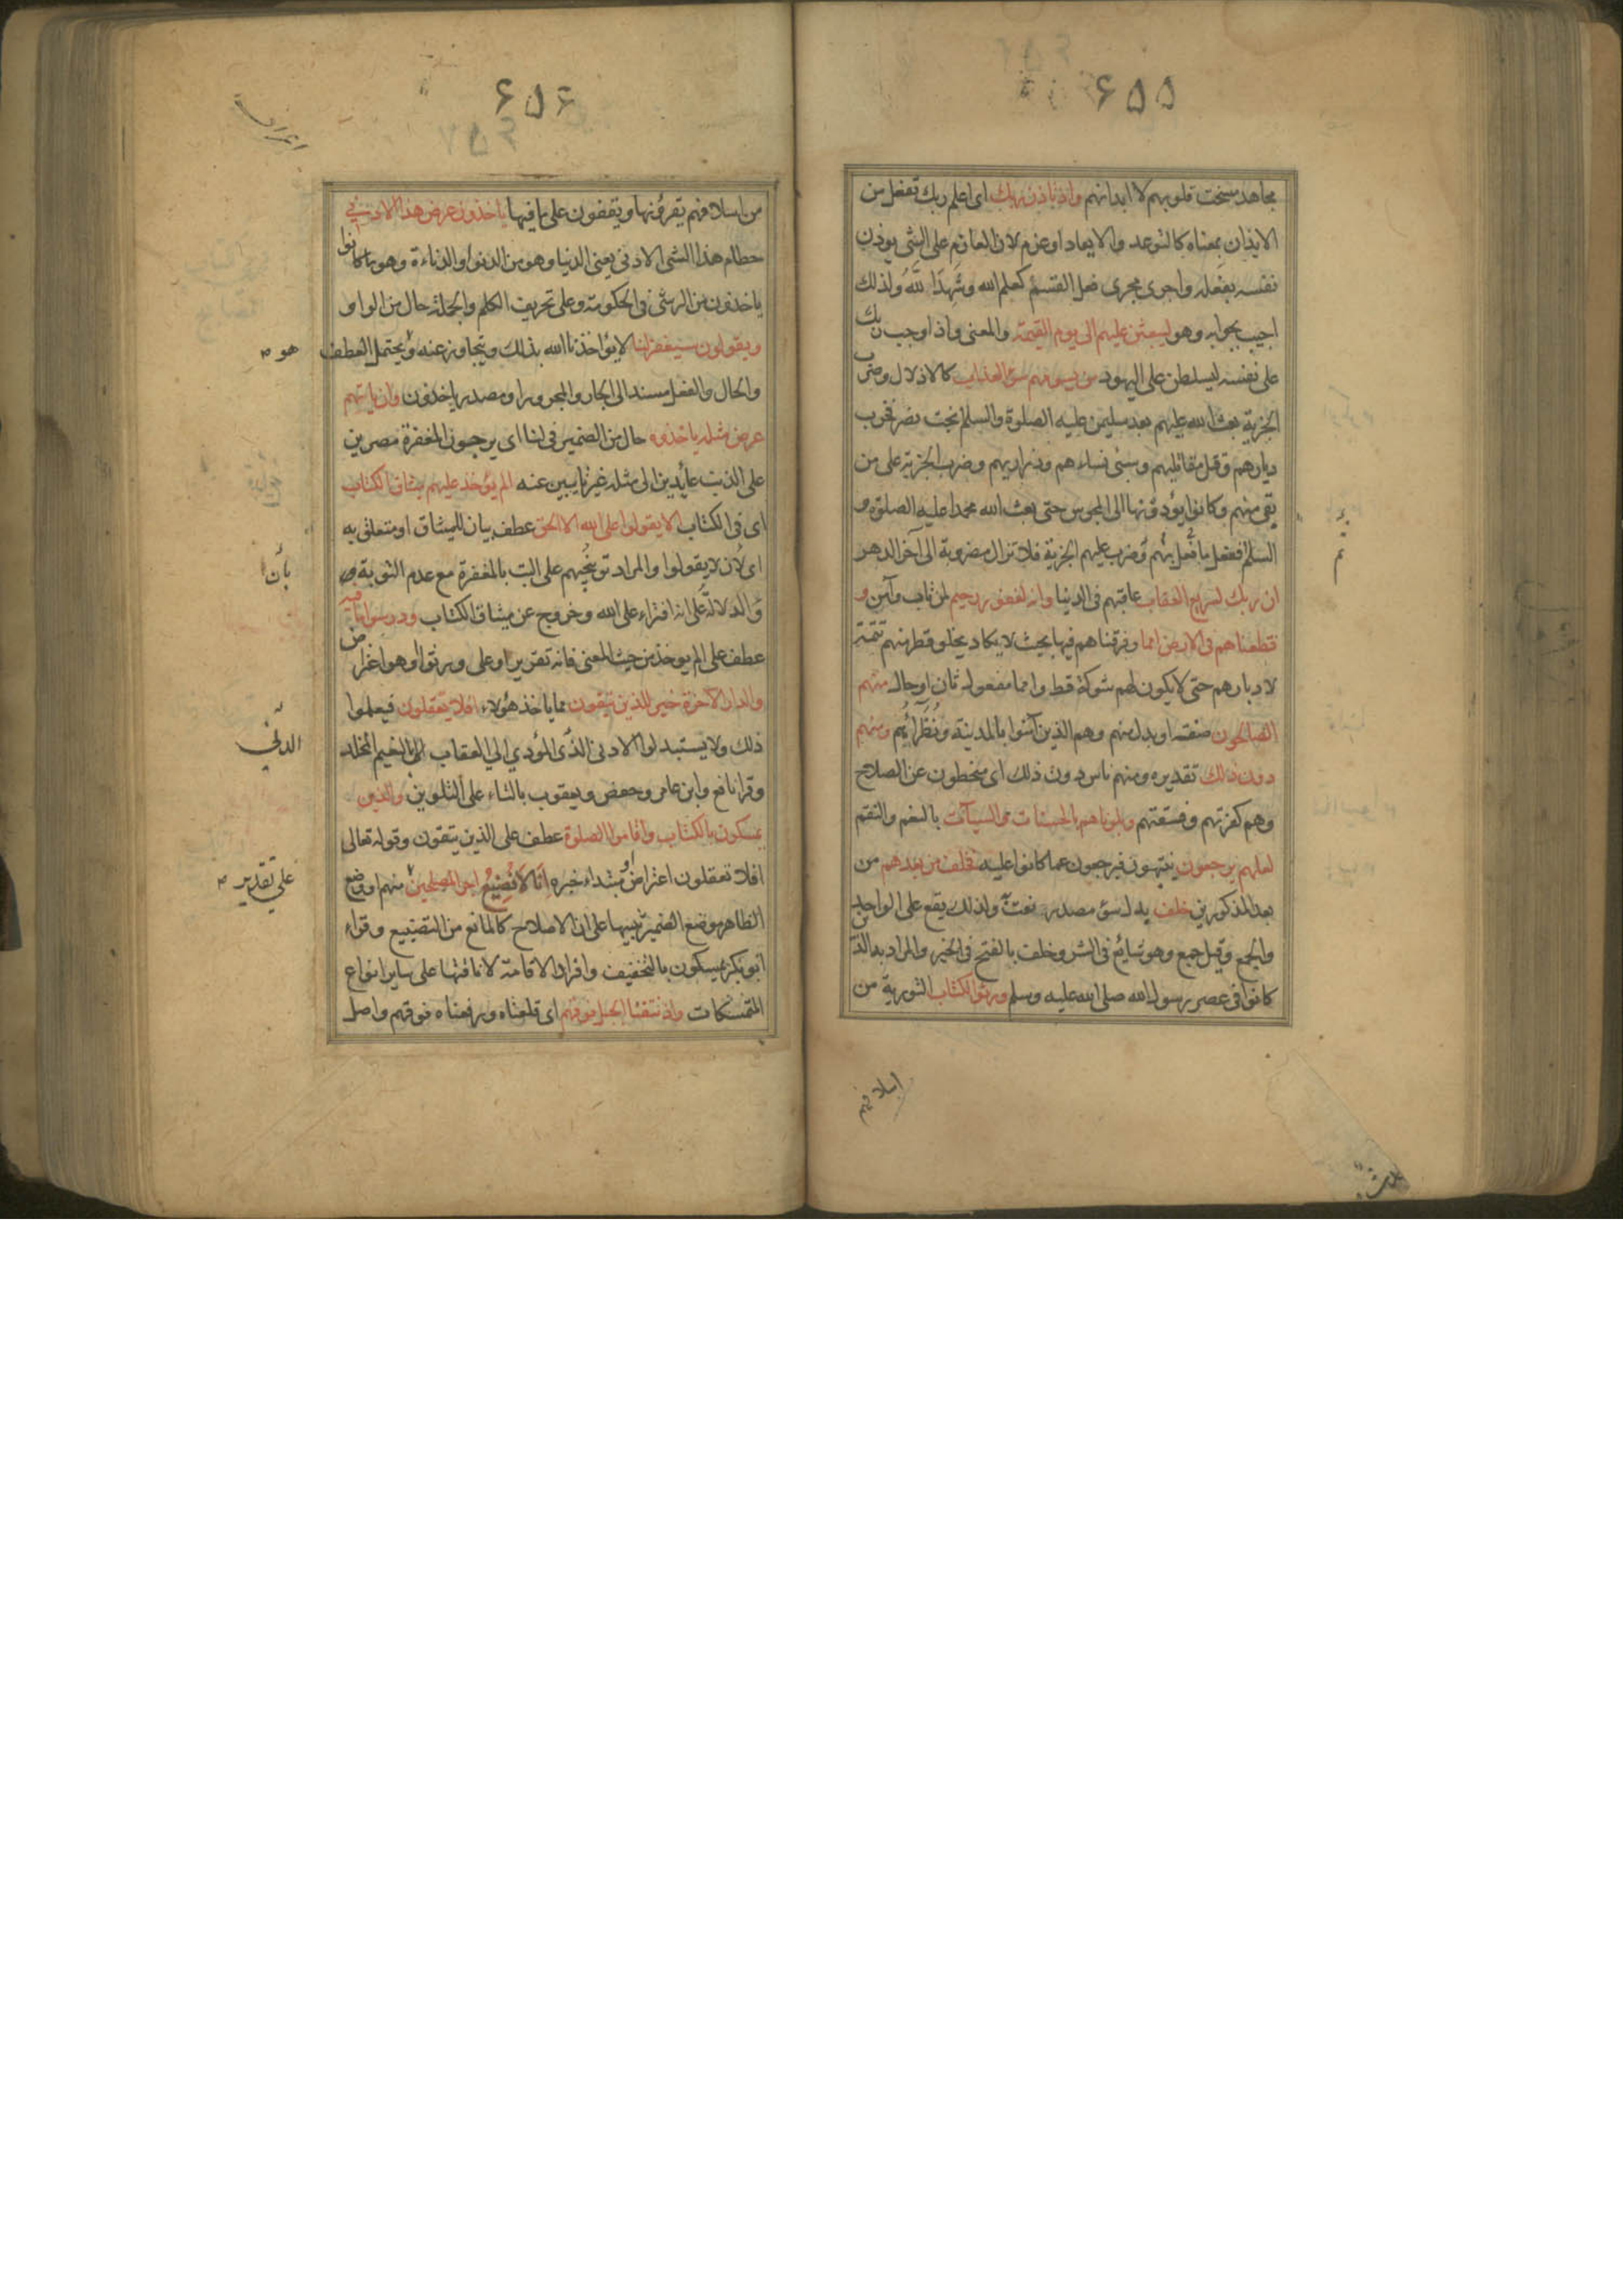 ۶۵۵
مجاهد مسخت قلوبهم لا ابدانهم واذ تاذن ربك اى اعلم ربك تفعل من
الايذان بمعناه كالتوعد والايعاد او عزم لان العازم على الشئ يوذن
نفسه بفعله واجرى مجرى فعل القسم كعلم الله وشهد الله ولذلك
اجيب بجوابه وهو ليبعثن عليهم الى يوم القيمة والمعنى واذ اوجب ربك
على نفسه ليسلطن على اليهود من يسومهم سوء العذاب كالاذلال وضرب
الجزية بعث الله عليهم بعد سليمن عليه الصلوة والسلم بخت نصر فخرب
ديارهم وقتل مقاتليهم وسبى نساءهم وذراريهم وضرب الجزية على من
بقى منهم وكانوا يؤدونها الى المجوس حتى بعث الله محمدا عليه الصلوة و
السلم ففعل ما فعل بهم وضرب عليهم الجزية فلا تزال مضروبة الى آخر الدهر
ان ربك لسريع العقاب عاقبهم فى الدنيا وانه لغفور رحيم لمن تاب وآمن و
قطعناهم فى الارض امما وفرقناهم فيها بحيث لا يكاد يخلو قطر منهم تتمة
لادبارهم حتى لا يكون لهم شوكة قط وامما مفعول ثان او حال منهم
الصالحون صفته او بدل منهم وهم الذين آمنوا بالمدينة ونظرائهم ومنهم
دون ذلك تقديره ومنهم ناس دون ذلك اى منحطون عن الصلاح
وهم كفرتهم وفسقتهم وبلوناهم بالحسنات والسيآت بالنعم والنقم
لعلهم يرجعون ينتهون فيرجعون عما كانوا عليه فخلف من بعدهم من
بعد المذكورين خلف بدل سوء مصدر نعت به ولذلك يقع على الواحد
والجمع وقيل جمع وهو شايع فى الشر وخلف بالفتح فى الخير والمراد به الذين
كانوا فى عصر رسول الله صلى الله عليه وسلم ورثوا الكتاب التورية من
اسلافهم
۶۵۶
من اسلافهم يقرؤنها ويقفون على ما فيها ياخذون عرض هذا الادنى
حطام هذا الشى الادنى يعنى الدنيا وهو من الدنو او الدناءة وهو ما كانوا
ياخذون من الرشى فى الحكومة وعلى تحريف الكلم والجملة حال من الواو
ويقولون سيغفر لنا لا يؤاخذنا الله بذلك ويتجاوز عنه ويحتمل العطف
هو
والحال والفعل مسند الى الجار والمجرور او مصدر ياخذون وان ياتهم
عرض مثله ياخذوه حال من الضمير فى لنا اى يرجون المغفرة مصرين
على الذنب عائدين الى مثله غير تايبين عنه الم يؤخذ عليهم ميثاق الكتاب
اى فى الكتاب الا يقولوا على الله الا الحق عطف بيان للميثاق او متعلق به
اى لان لا يقولوا والمراد توبيخهم على البت بالمغفرة مع عدم التوبة
بأن
والدلالة على انه افتراء على الله وخروج عن ميثاق الكتاب ودرسوا ما فيه
عطف على الم يوخذ من حيث المعنى فانه تقرير او على ورثوا وهو اعتراض
والدار الآخرة خير للذين يتقون مما ياخذ هؤلاء افلا يعقلون فيعلموا
ذلك ولا يستبدلوا الادنى الذى المؤدي الى العقاب بالنعيم المخلد
الدني
وقرا نافع وابن عامر وحفص ويعقوب بالتاء على التلوين والذين
يمسكون بالكتاب واقاموا الصلوة عطف على الذين يتقون وقوله تعالى
افلا تعقلون اعتراض او مبتداء خبره انا لا نضيع اجر المصلحين منهم او وضع
على تقدير
الظاهر موضع الضمير تنبيها على ان الاصلاح كالمانع من التضييع وقراء
ابو بكر يمسكون بالتخفيف وافراد الاقامة لانافتها على ساير انواع
المتمسكات واذ نتقنا الجبل فوقهم اى قلعناه ورفعناه فوقهم واصل